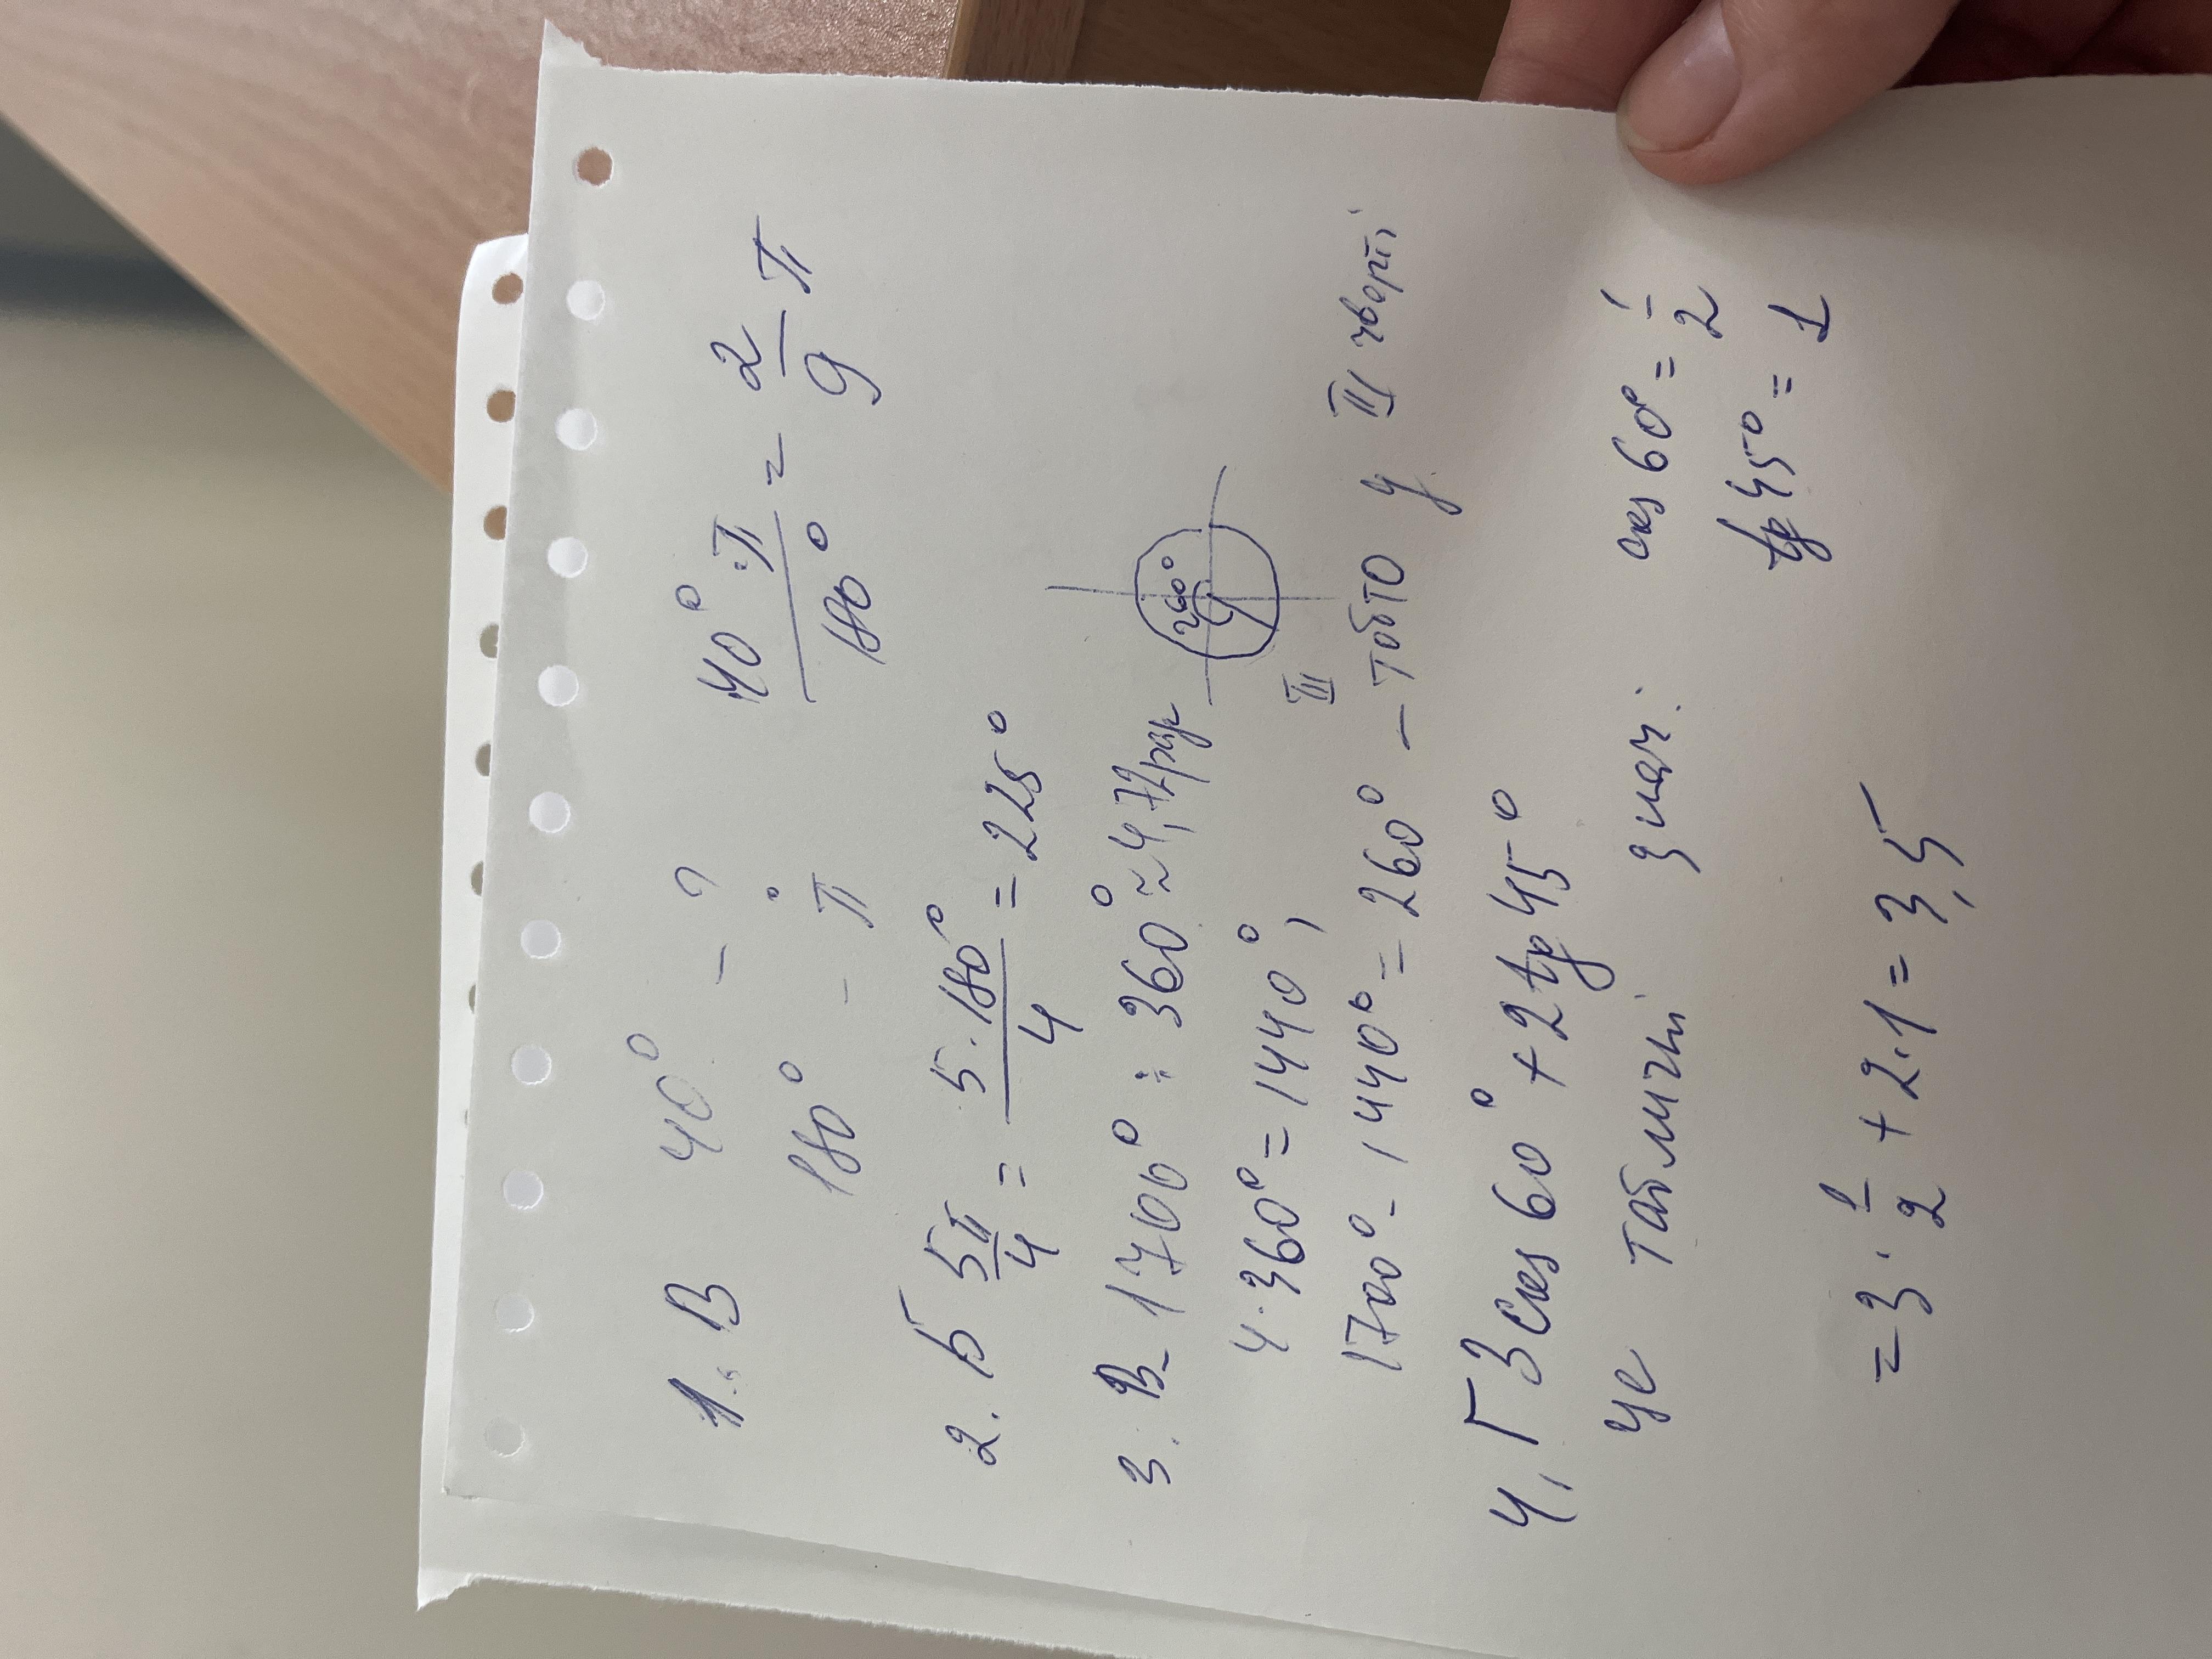 1. В 40° – ? 40°·π/180° = 2/9 π
180° – π
2. Б 5π/4 = 5·180°/4 = 225°
3. В – 1700° : 360° ≈ 4,72 раз
260°
4·360° = 1440°,
III
1700° – 1440° = 260° – тобто у III чверті
4, Г 3cos60° + 2tg45°
це табличні знач: cos60° = 1/2
tg45° = 1
= 3·1/2 + 2·1 = 3,5